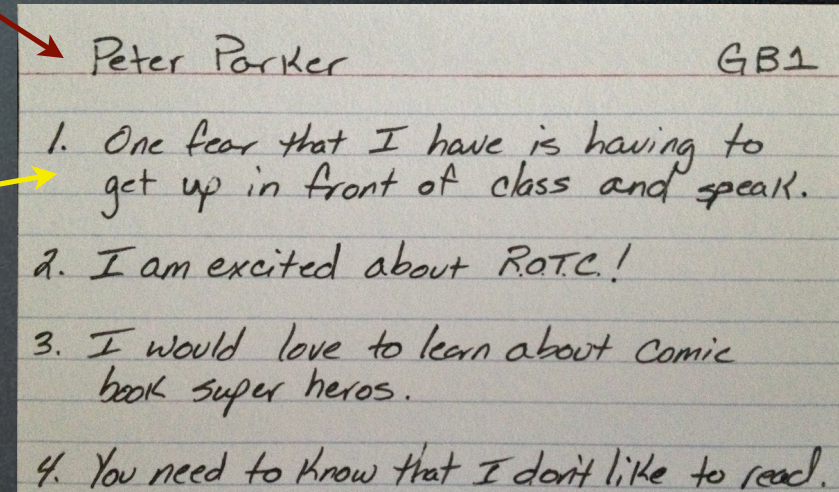 Peter Parker GB1
1. One fear that I have is having to
get up in front of class and speak.
2. I am excited about R.O.T.C.!
3. I would love to learn about Comic
book super heros.
4. You need to know that I don't like to read.